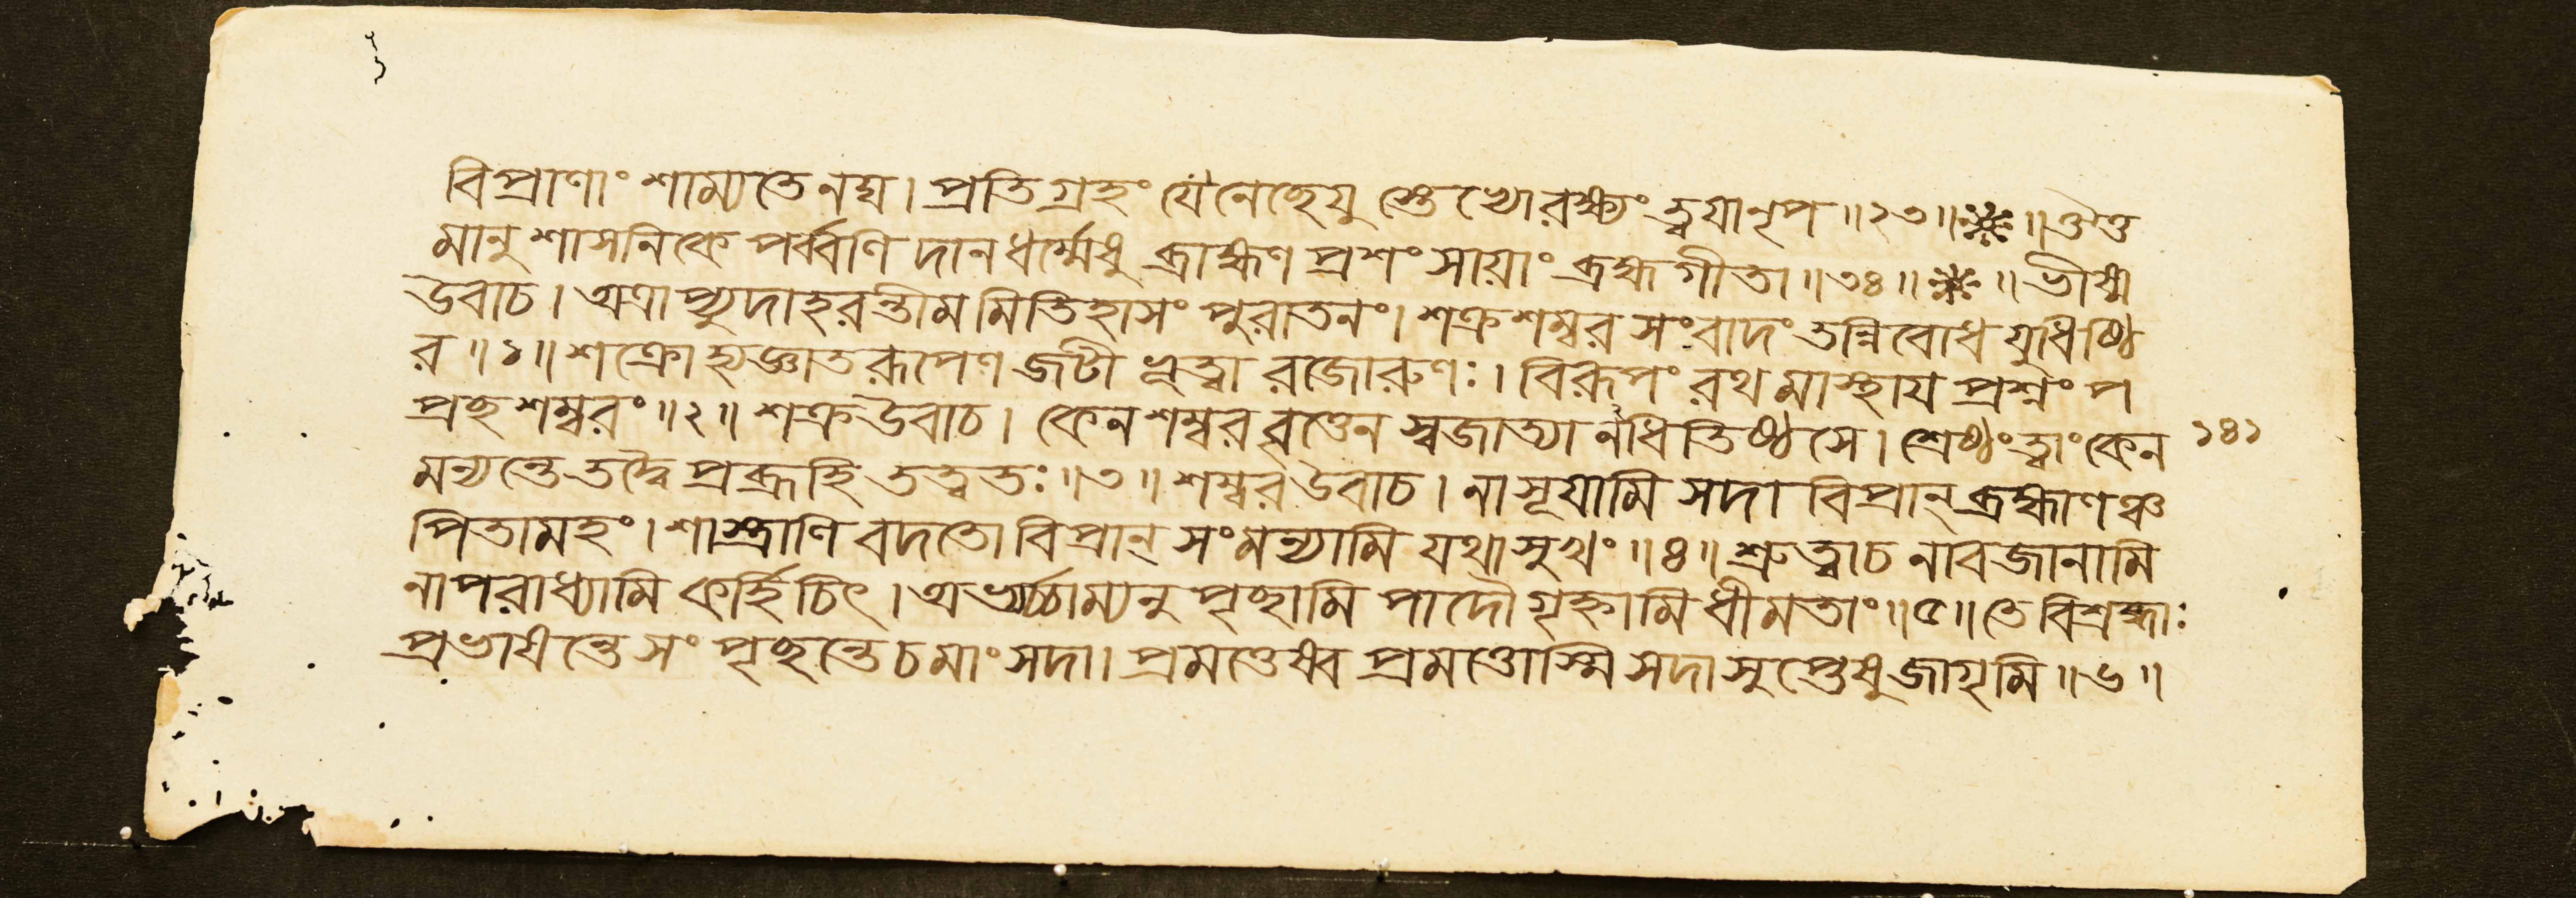 বিপ্রাণাং শাম্যতেনঘ। প্রতিগ্রহং যেনেচ্ছেযু স্তেভ্যোরক্ষ্যং ত্বযানৃপ॥২৩॥ ॥ঔত্ত
মানুশাসনিকে পর্ব্বণি দানধর্ম্মেষু ব্রাহ্মণ প্রশংসাযাং ব্রহ্মগীতা॥৩৪॥ ॥ভীষ্ম
উবাচ। অত্রাপ্যুদাহরন্তীমমিতিহাসং পুরাতনং। শক্রশম্বর সংবাদং তন্নিবোধ যুধিষ্ঠি
র॥১॥ শক্রোহ্যজ্ঞাতরূপেণ জটী ভূত্বা রজোরুণঃ। বিরূপং রথমাস্থায প্রশ্নং প
প্রচ্ছ শম্বরং॥২॥ শক্রউবাচ। কেন শম্বর বৃত্তেন স্বজাত্যানধিতিষ্ঠসে। শ্রেষ্ঠং ত্বাং কেন ১৪১
মন্যন্তে তদ্বৈ প্রব্রূহি তত্ত্বতঃ॥৩॥ শম্বরউবাচ। নাসূযামি সদা বিপ্রান্ ব্রহ্মাণঞ্চ
পিতামহং। শাস্ত্রাণি বদতো বিপ্রান্ সংমন্যামি যথাসুখং॥৪॥ শ্রুত্বাচ নাবজানামি
নাপরাধ্যামি কর্হিচিৎ। অভ্যর্চ্চাম্যনুপৃচ্ছামি পাদৌ গৃহ্নামি ধীমতাং॥৫॥ তে বিশ্রব্ধাঃ
প্রভাষন্তে সংপৃচ্ছন্তে চ মাং সদা। প্রমত্তেষ্বপ্রমত্তোস্মি সদা সুপ্তেষু জাগৃমি॥৬॥